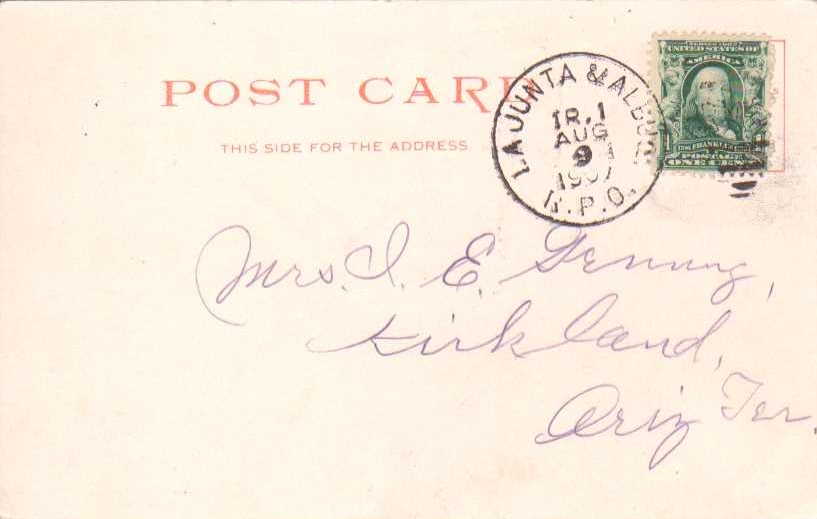 POST CARD
THIS SIDE FOR THE ADDRESS
LA JUNTA & ALBUQ.
TR. 1
AUG
9
1907
R.P.O.
SERIES 1902
UNITED STATES OF
AMERICA
FRANKLIN
POSTAGE
ONE CENT
Mrs. I. E. Genung,
Kirkland,
Ariz Ter.